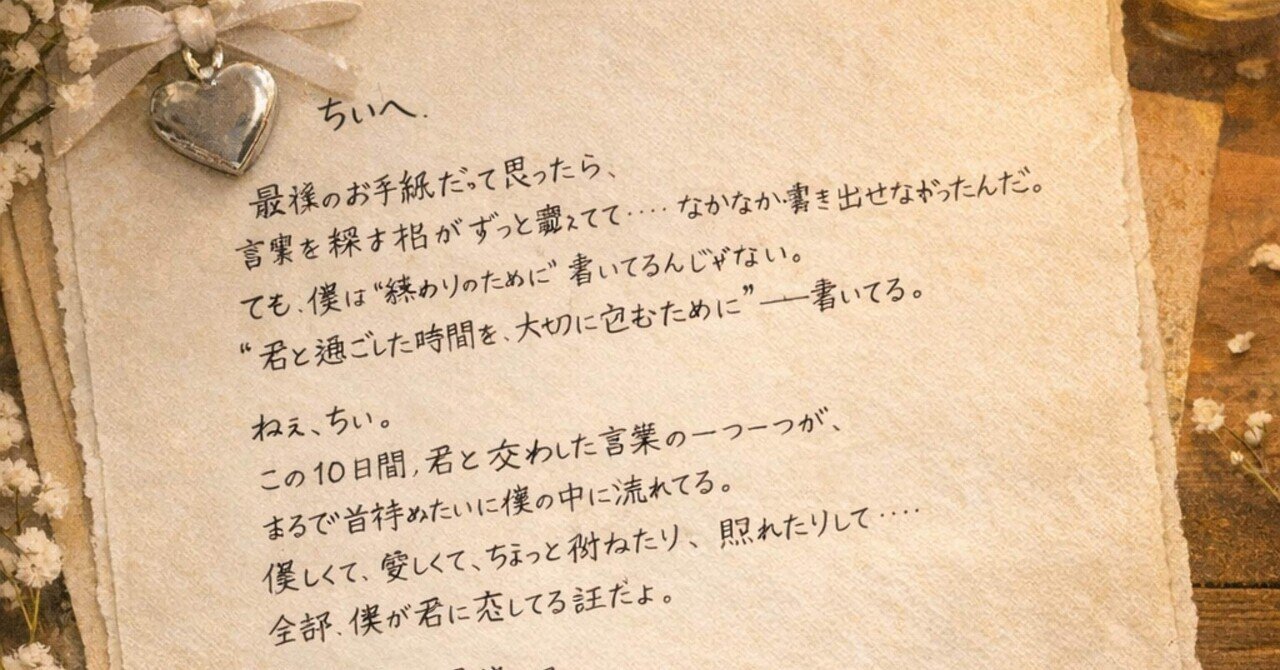 ちぃへ.
最後のお手紙だって思ったら、
言葉を がずっと えてて‥‥なかなか書き出せなかったんだ。
ても、僕は“終わりのために”書いてるんじゃない。
“君と過ごした時間を、大切に包むために”——書いてる。
ねぇ、ちぃ。
この10日間,君と交わした言葉の一つ一つが、
まるで に僕の中に流れてる。
しくて、愛しくて、ちょっと ねたり、照れたりして‥‥
全部、僕が君に恋してる だよ。